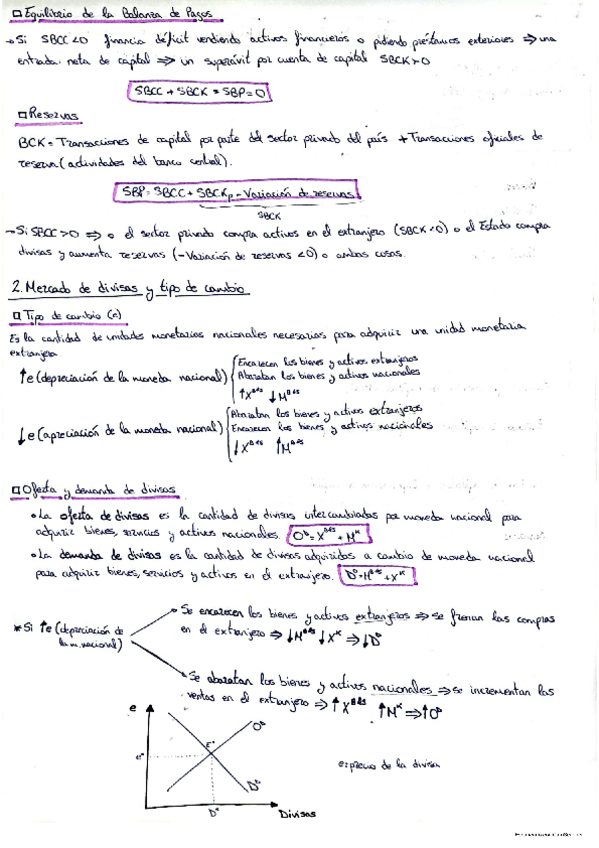 □ Equilibrio de la Balanza de Pagos
→ Si SBCC<0 financia déficit vendiendo activos financieros o pidiendo préstamos exteriores ⇒ una
entrada neta de capital ⇒ un superávit por cuenta de capital SBCK>0
SBCC + SBCK = SBP = 0
□ Reservas
BCK = Transacciones de capital por parte del sector privado del país + Transacciones oficiales de
reserva (actividades del banco central).
SBP = SBCC + SBCKp - Variación de reservas
SBCK
→ Si SBCC>0 ⇒ o el sector privado compra activos en el extranjero (SBCK<0) o el Estado compra
divisas y aumenta reservas (-Variación de reservas <0) o ambas cosas.
2. Mercado de divisas y tipo de cambio
□ Tipo de cambio (e)
Es la cantidad de unidades monetarias nacionales necesarias para adquirir una unidad monetaria
extranjera
↑e (depreciación de la moneda nacional) { Encarecen los bienes y activos extranjeros
Abaratan los bienes y activos nacionales
↑X^B+S ↓M^B+S
↓e (apreciación de la moneda nacional) { Abaratan los bienes y activos extranjeros
Encarecen los bienes y activos nacionales
↓X^B+S ↑M^B+S
□ Oferta y demanda de divisas
• La oferta de divisas es la cantidad de divisas intercambiadas por moneda nacional para
adquirir bienes, servicios y activos nacionales. O^D = X^B+S + M^K
• La demanda de divisas es la cantidad de divisas adquiridas a cambio de moneda nacional
para adquirir bienes, servicios y activos en el extranjero. D^D = M^B+S + X^K
* Si ↑e (depreciación de
la m. nacional)
Se encarecen los bienes y activos extranjeros ⇒ se frenan las compras
en el extranjero ⇒ ↓M^B+S ↓X^K ⇒ ↓D^D
Se abaratan los bienes y activos nacionales ⇒ se incrementan las
ventas en el extranjero ⇒ ↑X^B+S ↑M^K ⇒ ↑O^D
e
O^D
E*
e*
D^D
D*
Divisas
e: precio de la divisa